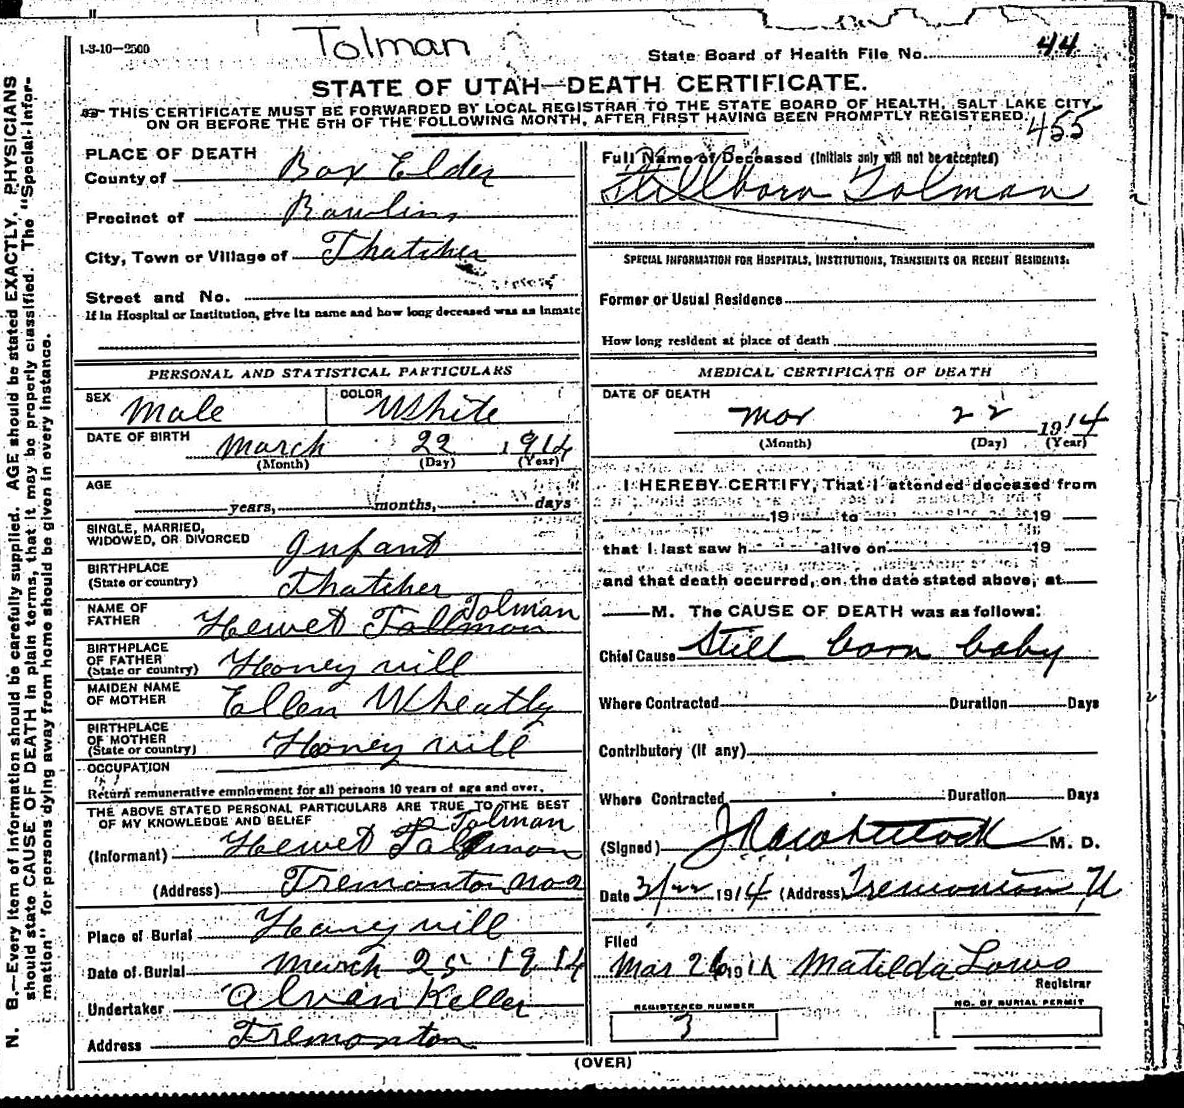 1-3-10—2500
Tolman
State Board of Health File No. 44
STATE OF UTAH—DEATH CERTIFICATE.
THIS CERTIFICATE MUST BE FORWARDED BY LOCAL REGISTRAR TO THE STATE BOARD OF HEALTH, SALT LAKE CITY,
ON OR BEFORE THE 5TH OF THE FOLLOWING MONTH, AFTER FIRST HAVING BEEN PROMPTLY REGISTERED.
455
N. B.—Every item of information should be carefully supplied. AGE should be stated EXACTLY. PHYSICIANS
should state CAUSE OF DEATH in plain terms, that it may be properly classified. The "Special Infor-
mation" for persons dying away from home should be given in every instance.
PLACE OF DEATH
County of Box Elder
Precinct of Rawlins
City, Town or Village of Thatcher
Street and No.
If in Hospital or Institution, give its name and how long deceased was as Inmate
PERSONAL AND STATISTICAL PARTICULARS
SEX Male COLOR White
DATE OF BIRTH March 22 1914
(Month) (Day) (Year)
AGE
years, months, days
SINGLE, MARRIED,
WIDOWED, OR DIVORCED Infant
BIRTHPLACE
(State or country) Thatcher
NAME OF
FATHER Hewet Tallmon Tolman
BIRTHPLACE
OF FATHER
(State or country) Honey vill
MAIDEN NAME
OF MOTHER Ellen Wheatly
BIRTHPLACE
OF MOTHER
(State or country) Honey vill
OCCUPATION
Return remunerative employment for all persons 10 years of age and over.
THE ABOVE STATED PERSONAL PARTICULARS ARE TRUE TO THE BEST
OF MY KNOWLEDGE AND BELIEF
Tolman
(Informant) Hewet
(Address) Tremonton No 2
Place of Burial Honey vill
Date of Burial March 25 1914
Undertaker Alvan Keller
Address Tremonton
Full Name of Deceased (Initials only will not be accepted)
Stillborn Tolman
SPECIAL INFORMATION FOR HOSPITALS, INSTITUTIONS, TRANSIENTS OR RECENT RESIDENTS.
Former or Usual Residence
How long resident at place of death
MEDICAL CERTIFICATE OF DEATH
DATE OF DEATH
Mar 22 1914
(Month) (Day) (Year)
I HEREBY CERTIFY, That I attended deceased from
19 to 19
that I last saw h alive on 19
and that death occurred, on the date stated above, at
M. The CAUSE OF DEATH was as follows:
Chief Cause Still born baby
Where Contracted Duration Days
Contributory (if any)
Where Contracted Duration Days
(Signed) M. D.
Date 3/22 1914 (Address) Tremonton U
Filed
Mar 26 1914 Matilda
Registrar
REGISTERED NUMBER
3
NO. OF BURIAL PERMIT
(OVER)